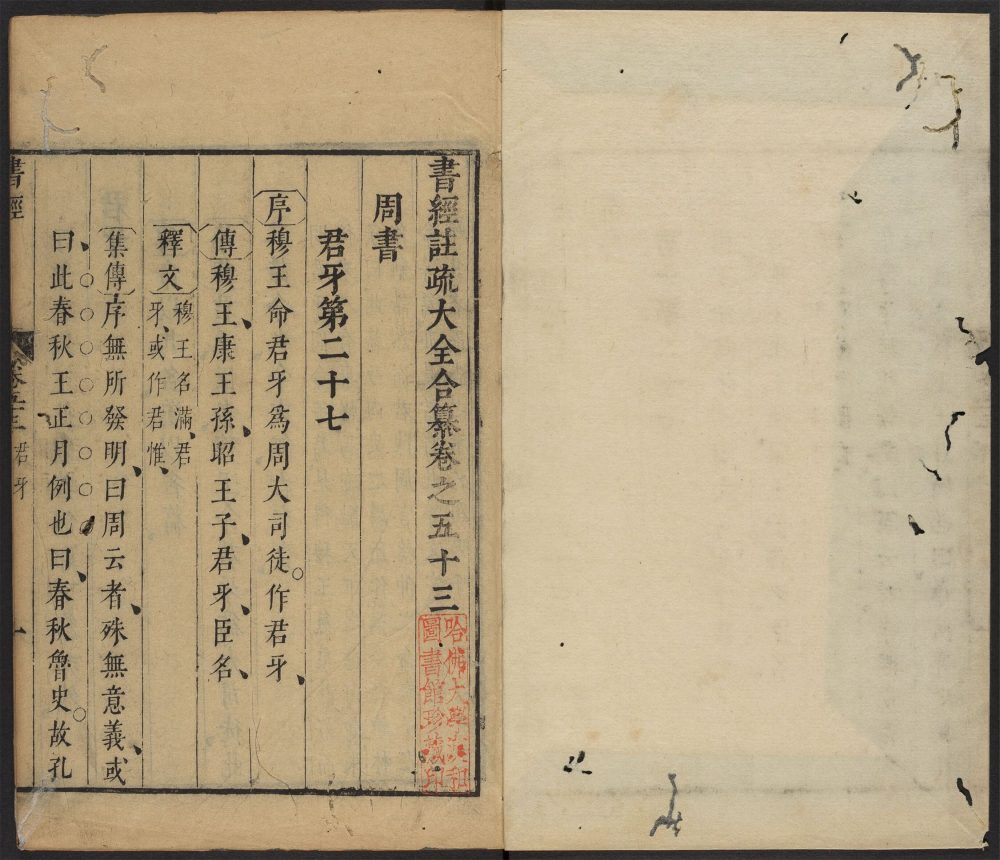 書經註疏大全合纂卷之五十三
哈佛大學漢和
圖書館珍藏印
周書
君牙第二十七
序穆王命君牙爲周大司徒。作君牙、
傳穆王、康王孫、昭王子、君牙、臣名、
釋文穆王名滿、君
牙、或作君惟、
集傳序無所發明、曰周云者、殊無意義、或
曰、此春秋王正月例也、曰、春秋魯史。故孔
書經
卷五十三 君牙
一